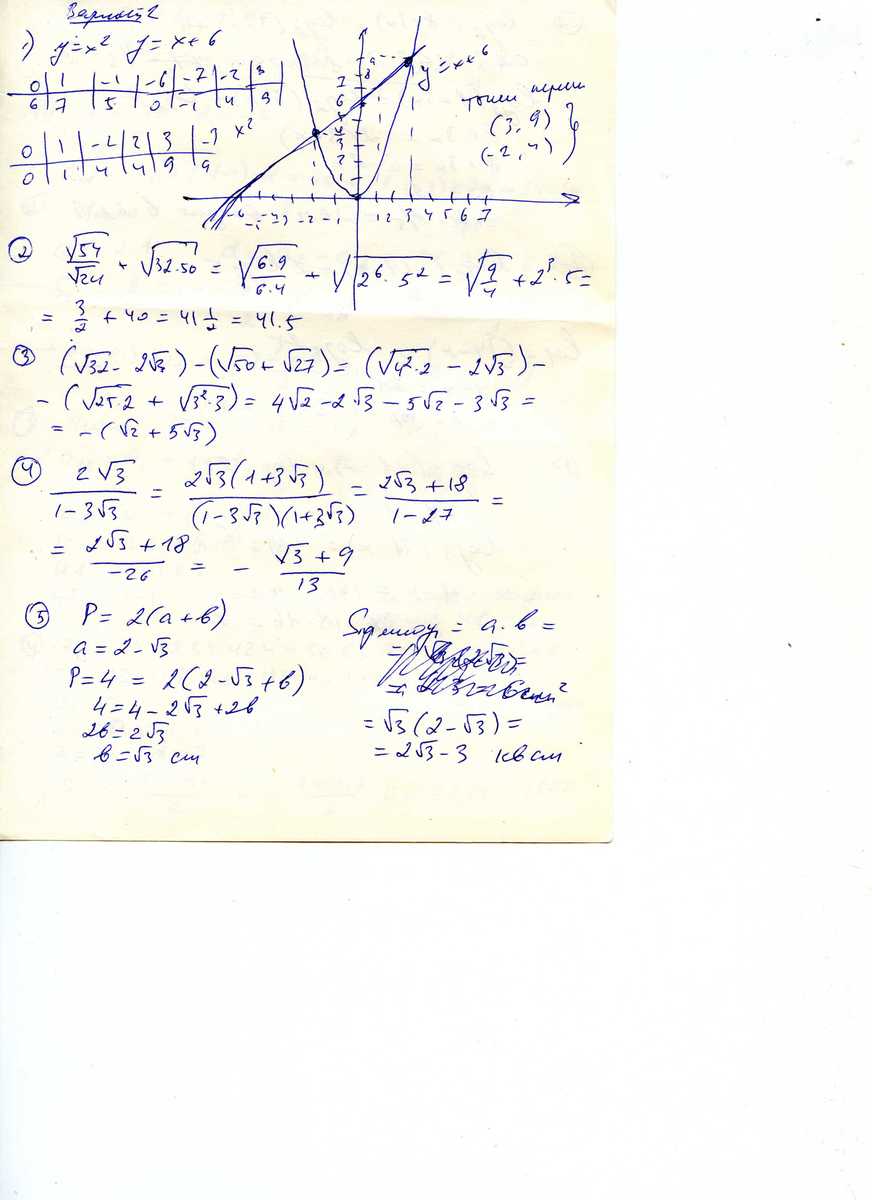 Вариант 2
1) y=x² y=x+6
0 | 1 | -1 | -6 | -7 | -2 | 3
6 | 7 | 5 | 0 | -1 | 4 | 9
0 | 1 | -2 | 2 | 3 | -3 x²
0 | 1 | 4 | 4 | 9 | 9
точки перес
(3, 9)
(-2, 4) }
② √54/√24 + √(32·50) = √(6·9/6·4) + √(2⁶·5²) = √(9/4) + 2³·5 =
= 3/2 + 40 = 41 1/2 = 41.5
③ (√32 - 2√3) - (√50 + √27) = (√(4²·2) - 2√3) -
- (√(25·2) + √(3²·3)) = 4√2 - 2√3 - 5√2 - 3√3 =
= - (√2 + 5√3)
④ 2√3/(1-3√3) = 2√3(1+3√3)/((1-3√3)(1+3√3)) = (2√3+18)/(1-27) =
= (2√3+18)/(-26) = - (√3+9)/13
⑤ P = 2(a+b)
a = 2-√3
P=4 = 2(2-√3+b)
4 = 4-2√3+2b
2b = 2√3
b = √3 см
= a·b =
= √3(2-√3) =
= 2√3-3 кв см